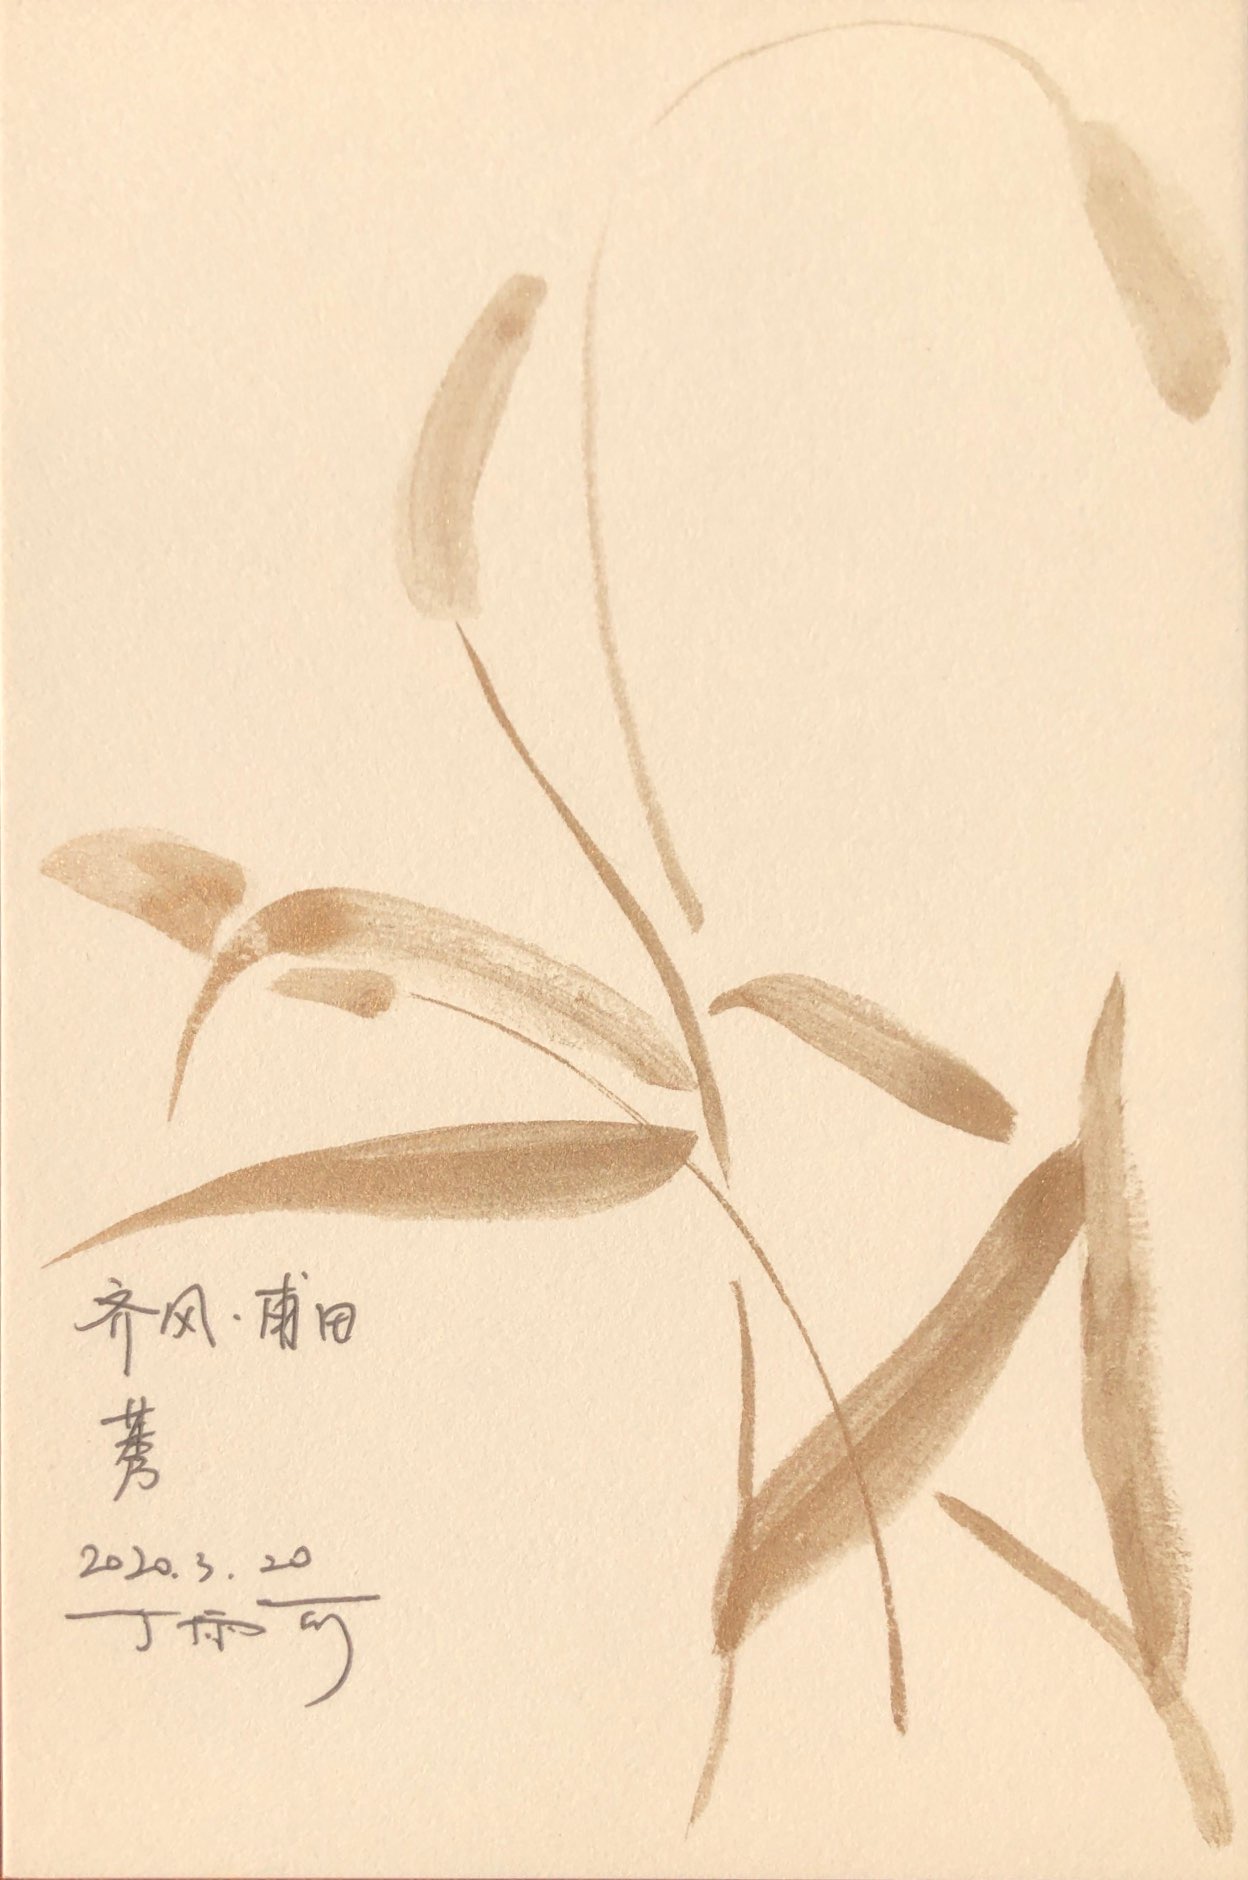 齐风·甫田
莠
2020.3.20
丁雨可